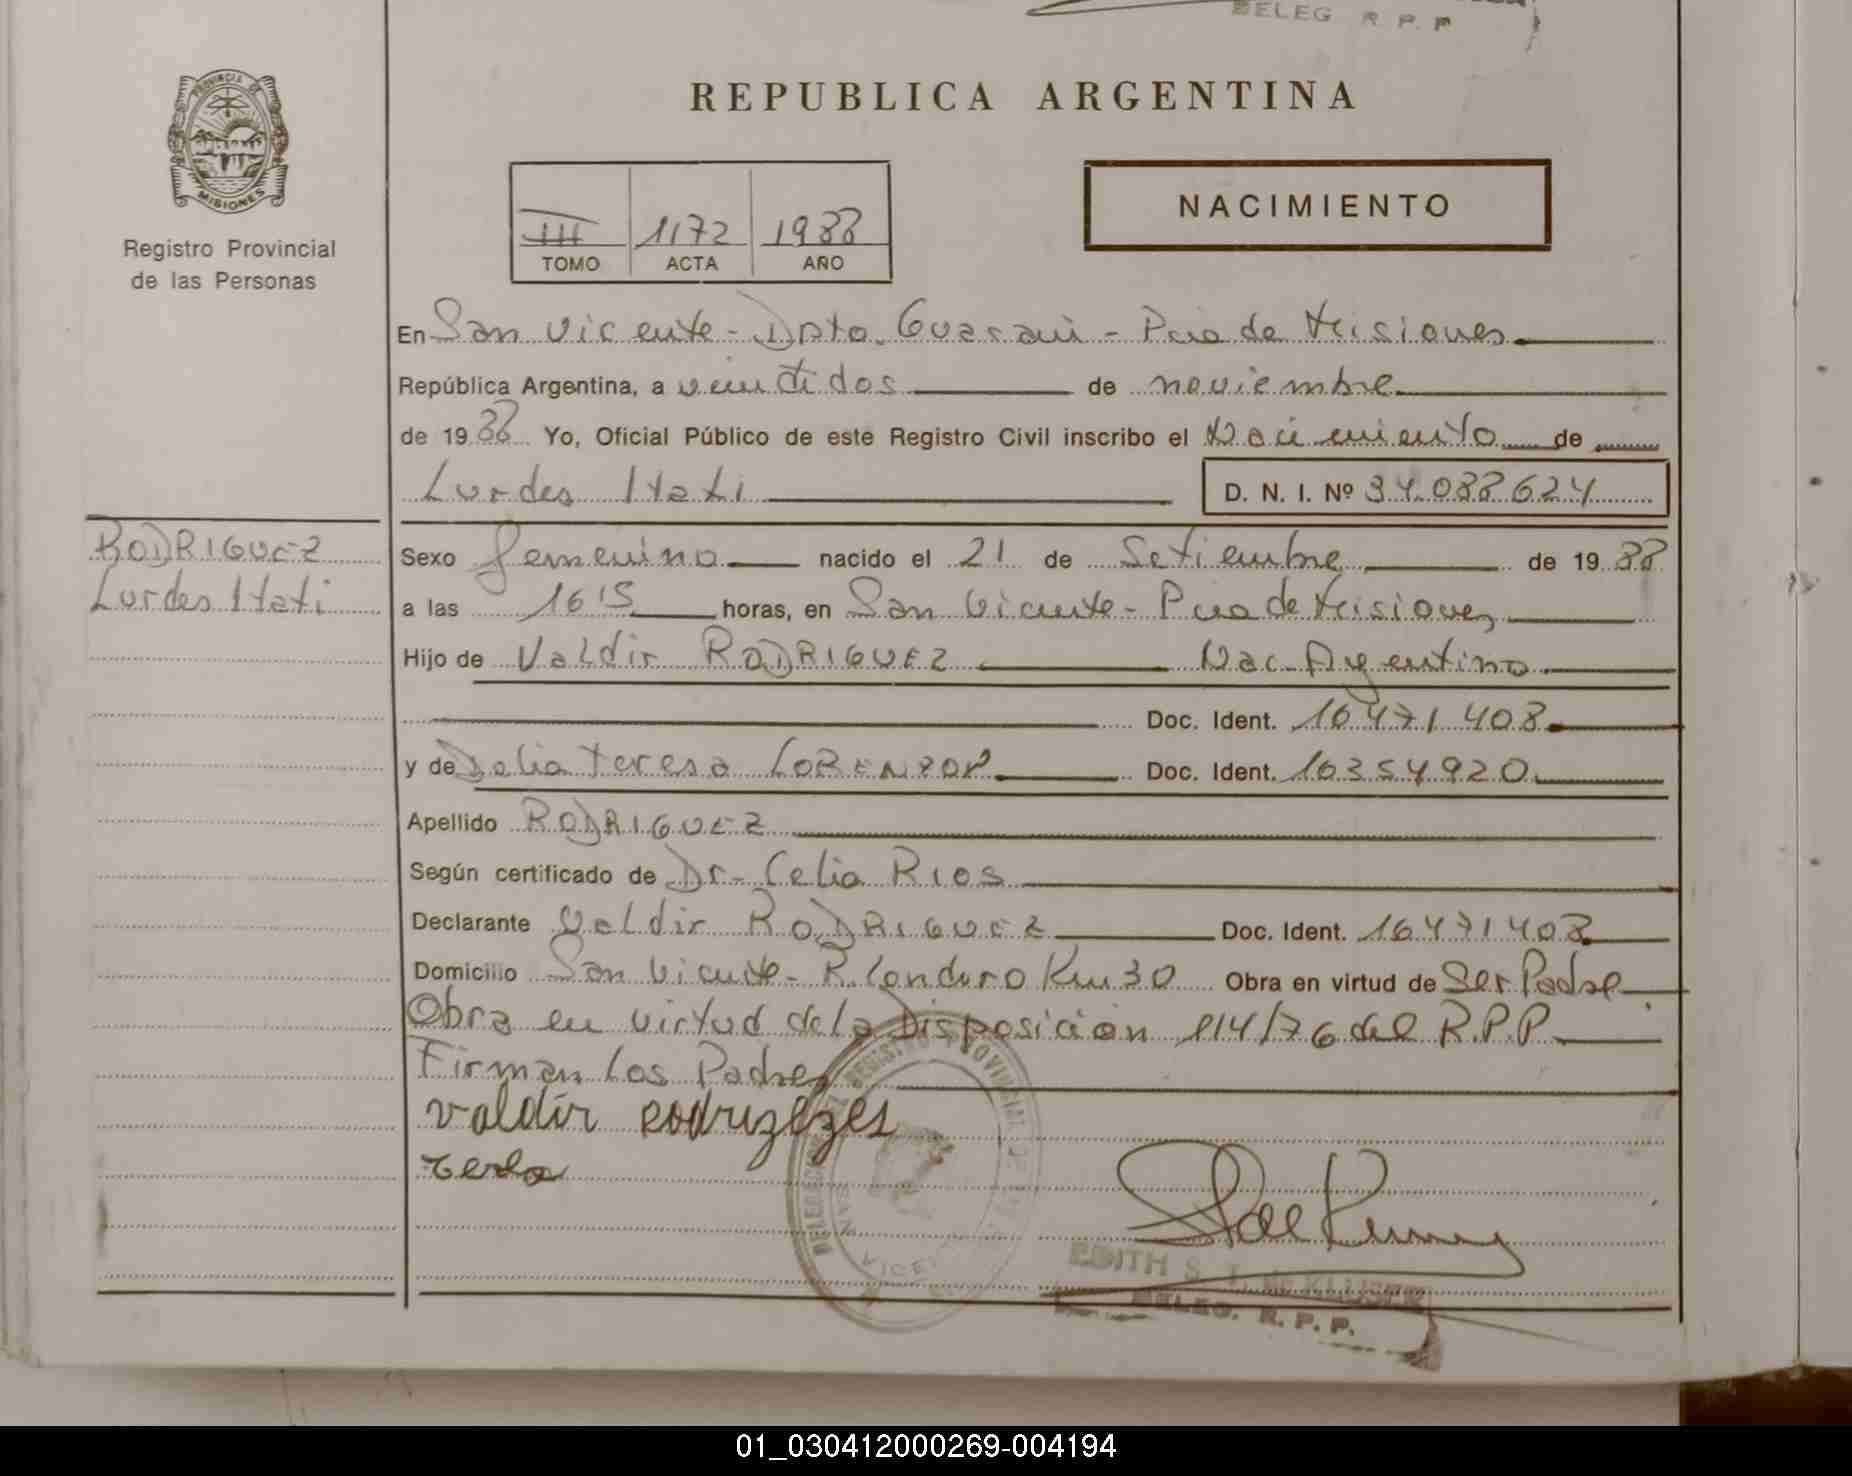 DELEG. R. P. P.
REPUBLICA ARGENTINA
PROVINCIA DE
MISIONES
Registro Provincial
de las Personas
NACIMIENTO
III 1172 1988
TOMO ACTA AÑO
En San Vicente - Dpto. Guaraní - Pcia de Misiones
República Argentina, a veintidos de noviembre
de 1988 Yo, Oficial Público de este Registro Civil inscribo el Nacimiento de
Lurdes Itati D. N. I. Nº 34.088624
RODRIGUEZ
Lurdes Itati
Sexo femenino nacido el 21 de Setiembre de 1988
a las 16'15 horas, en San Vicente - Pcia de Misiones
Hijo de Valdir RODRIGUEZ Nac. Argentino
Doc. Ident. 16471408
y de Delia Teresa Doc. Ident. 16354920
Apellido RODRIGUEZ
Según certificado de Dr. Celia RIOS
Declarante Valdir RODRIGUEZ Doc. Ident. 16471408
Domicilio San Vicente - R. Londero Km 30 Obra en virtud de Ser Padre
Obra en virtud de la Disposición 114/76 del R.P.P.
Firman Los Padres
valdir
DELEGACION REGISTRO PROVINCIAL DE
SAN VICENTE
EDITH S. L. de KLUSER
DELEG. R. P. P.
01_030412000269-004194